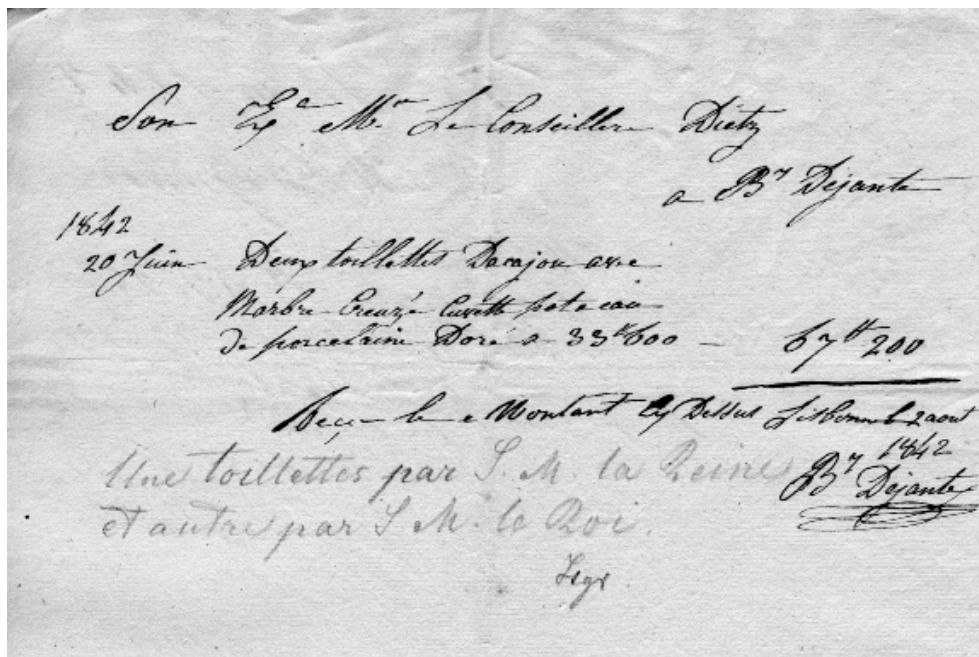 Son Exᵃ Mʳ Le Conseillere Dietz
a Bʸ Dejante
1842
20 Juin Deux toillettes Dacajou avec
Marbre Creuzé Cuvette pot a eau
de porcelaine Doré a 33# 600 — 67# 200
Reçu le Montant Cy Dessus Lisbonne le 2 aout
1842
Bʸ Dejante
Une toillettes par S. M. la Reine
et autre par S M. le Roi.